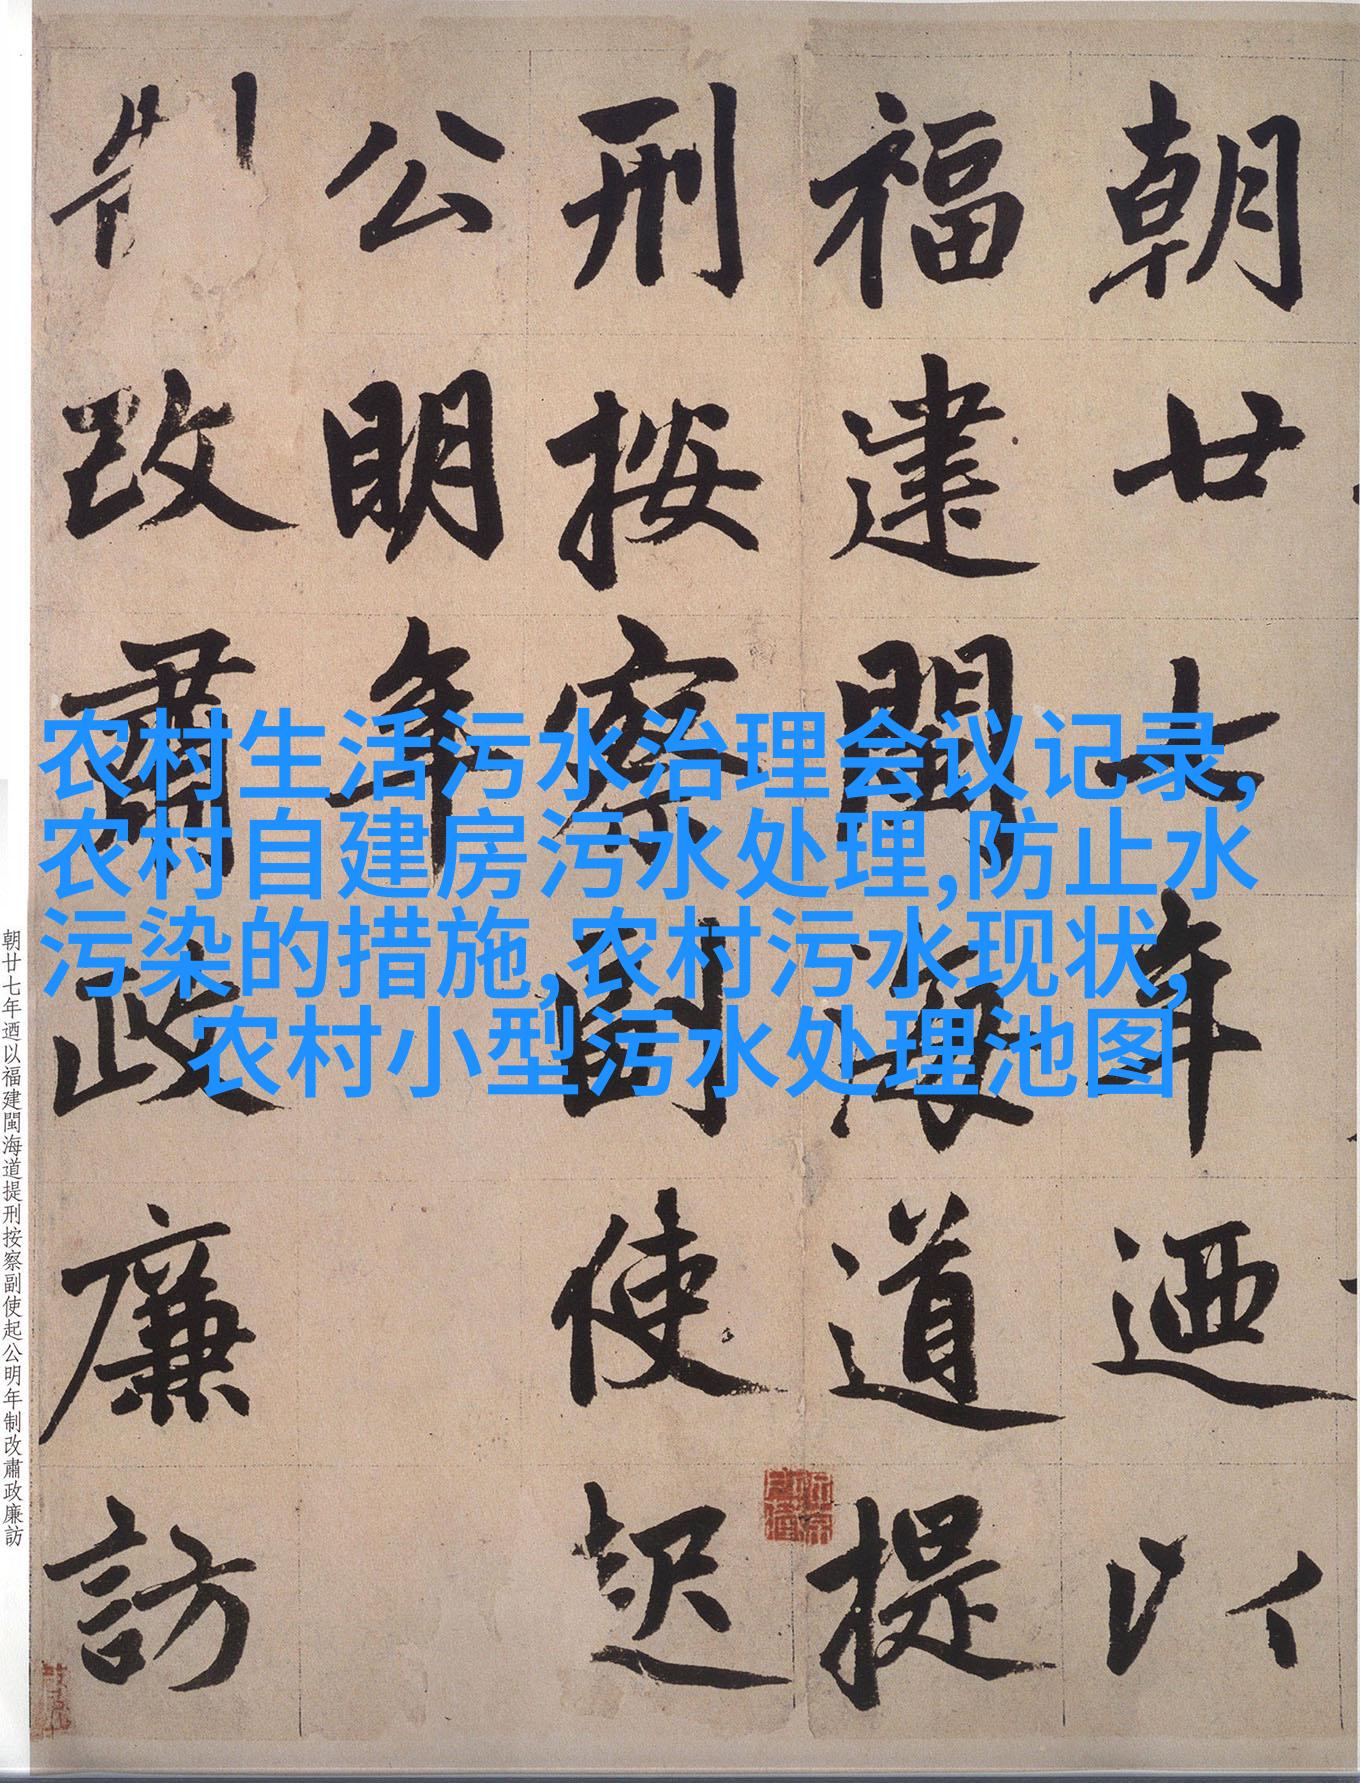 朝廿七年迺以
福建閩海道提
刑按察副使起
公明年
制改肅政廉訪
农村生活污水治理会议记录,
农村自建房污水处理,防止水
污染的措施,农村污水现状,
农村小型污水处理池图
朝廿七年迺以福建閩海道提刑按察副使起公明年制改肅政廉訪